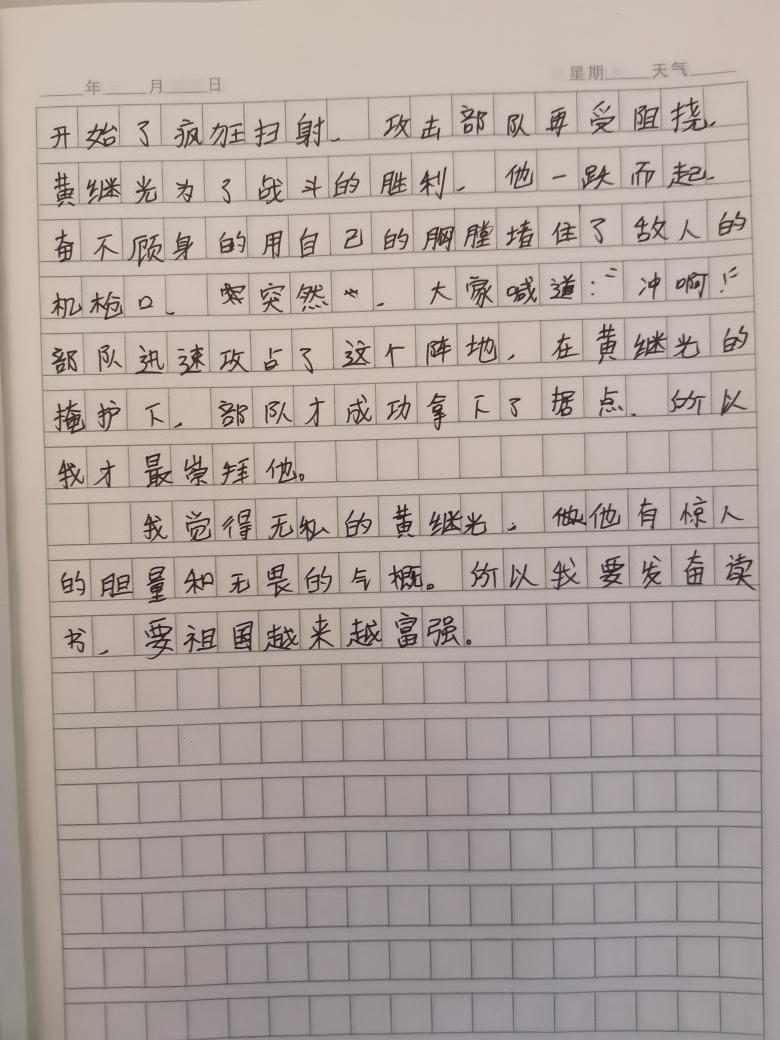 年 月 日 星期 天气
开始了疯狂扫射、攻击部队再受阻挠、
黄继光为了战斗的胜利、他一跃而起、
奋不顾身的用自己的胸膛堵住了敌人的
机枪口、突然、大家喊道:“冲啊!”
部队迅速攻占了这个阵地，在黄继光的
掩护下，部队才成功拿下了据点、所以
我才最崇拜他。
我觉得无私的黄继光，他有惊人
的胆量和无畏的气概。所以我要发奋读
书，要祖国越来越富强。